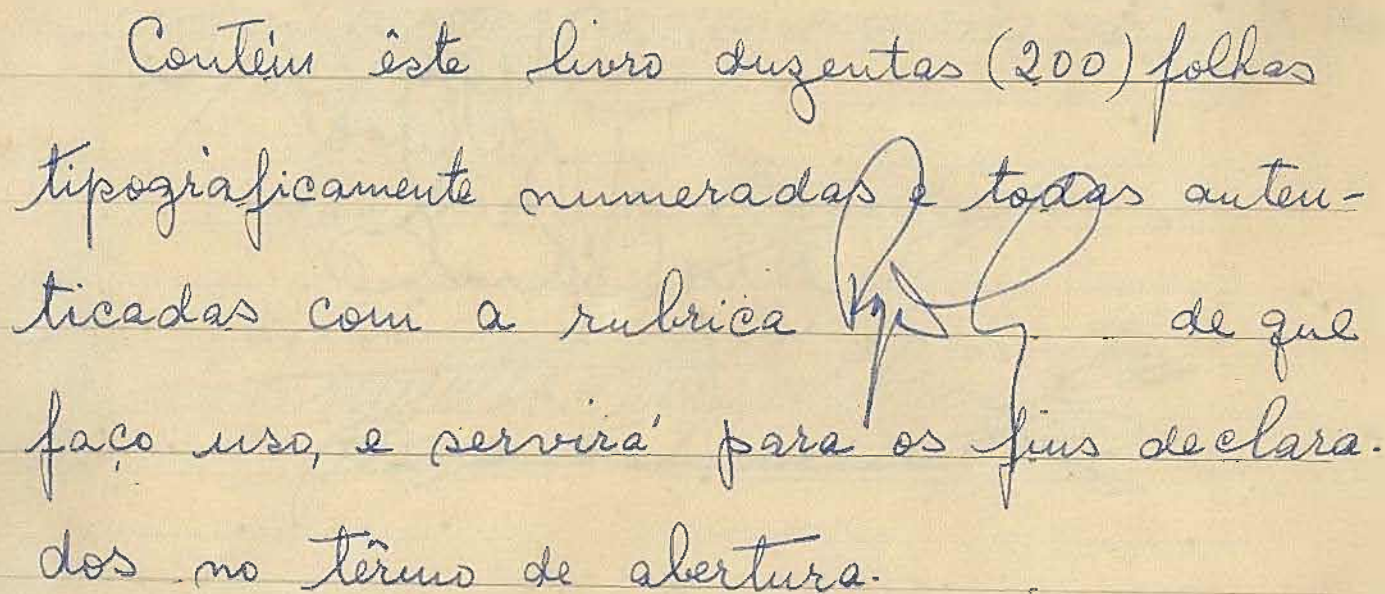 Contém êste livro duzentas (200) folhas
tipograficamente numeradas e todas auten-
ticadas com a rubrica de que
faço uso, e servirá para os fins declara-
dos no têrmo de abertura.